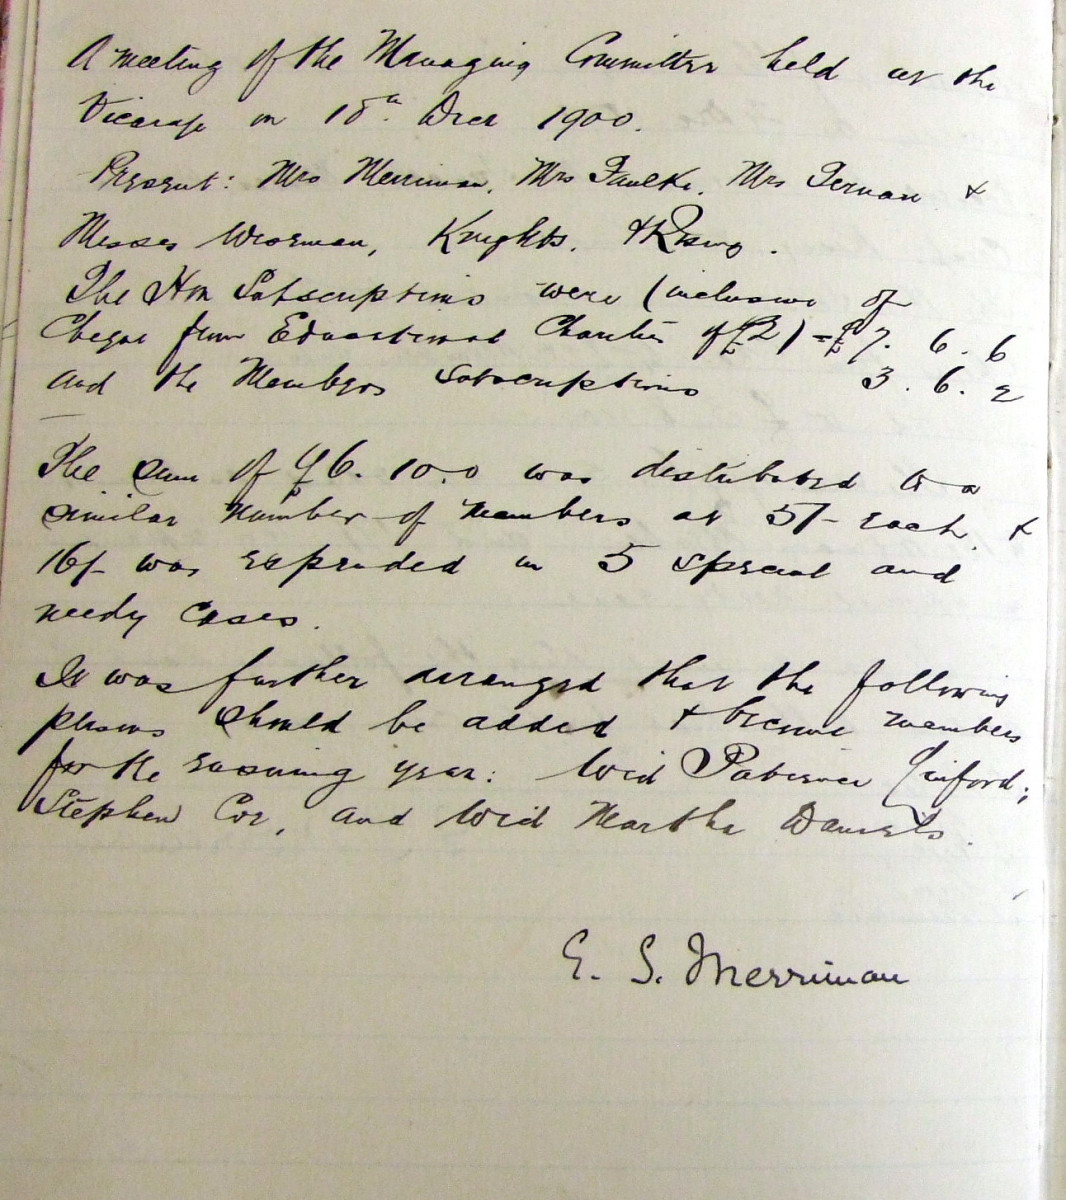 A meeting of the Managing Committee held at the
Vicarage on 18th Decr 1900.
Present: Mrs Merriman, Mrs Faulke, Mrs Ternan &
Misses Worsman, Knights, & Rising.
The Hon Subscriptions were (inclusive of
Cheque from Educational Charities of £2) = £7. 6. 6
and the Members Subscriptions 3. 6. 2
The sum of £6. 10. 0 was distributed to a
similar number of members at 5/- each, &
16/- was expended in 5 special and
needy cases.
It was further arranged that the following
persons should be added & become members
for the ensuing year: Wid Patience
Stephen Cox, and Wid Martha Daniels.
E. S. Merriman